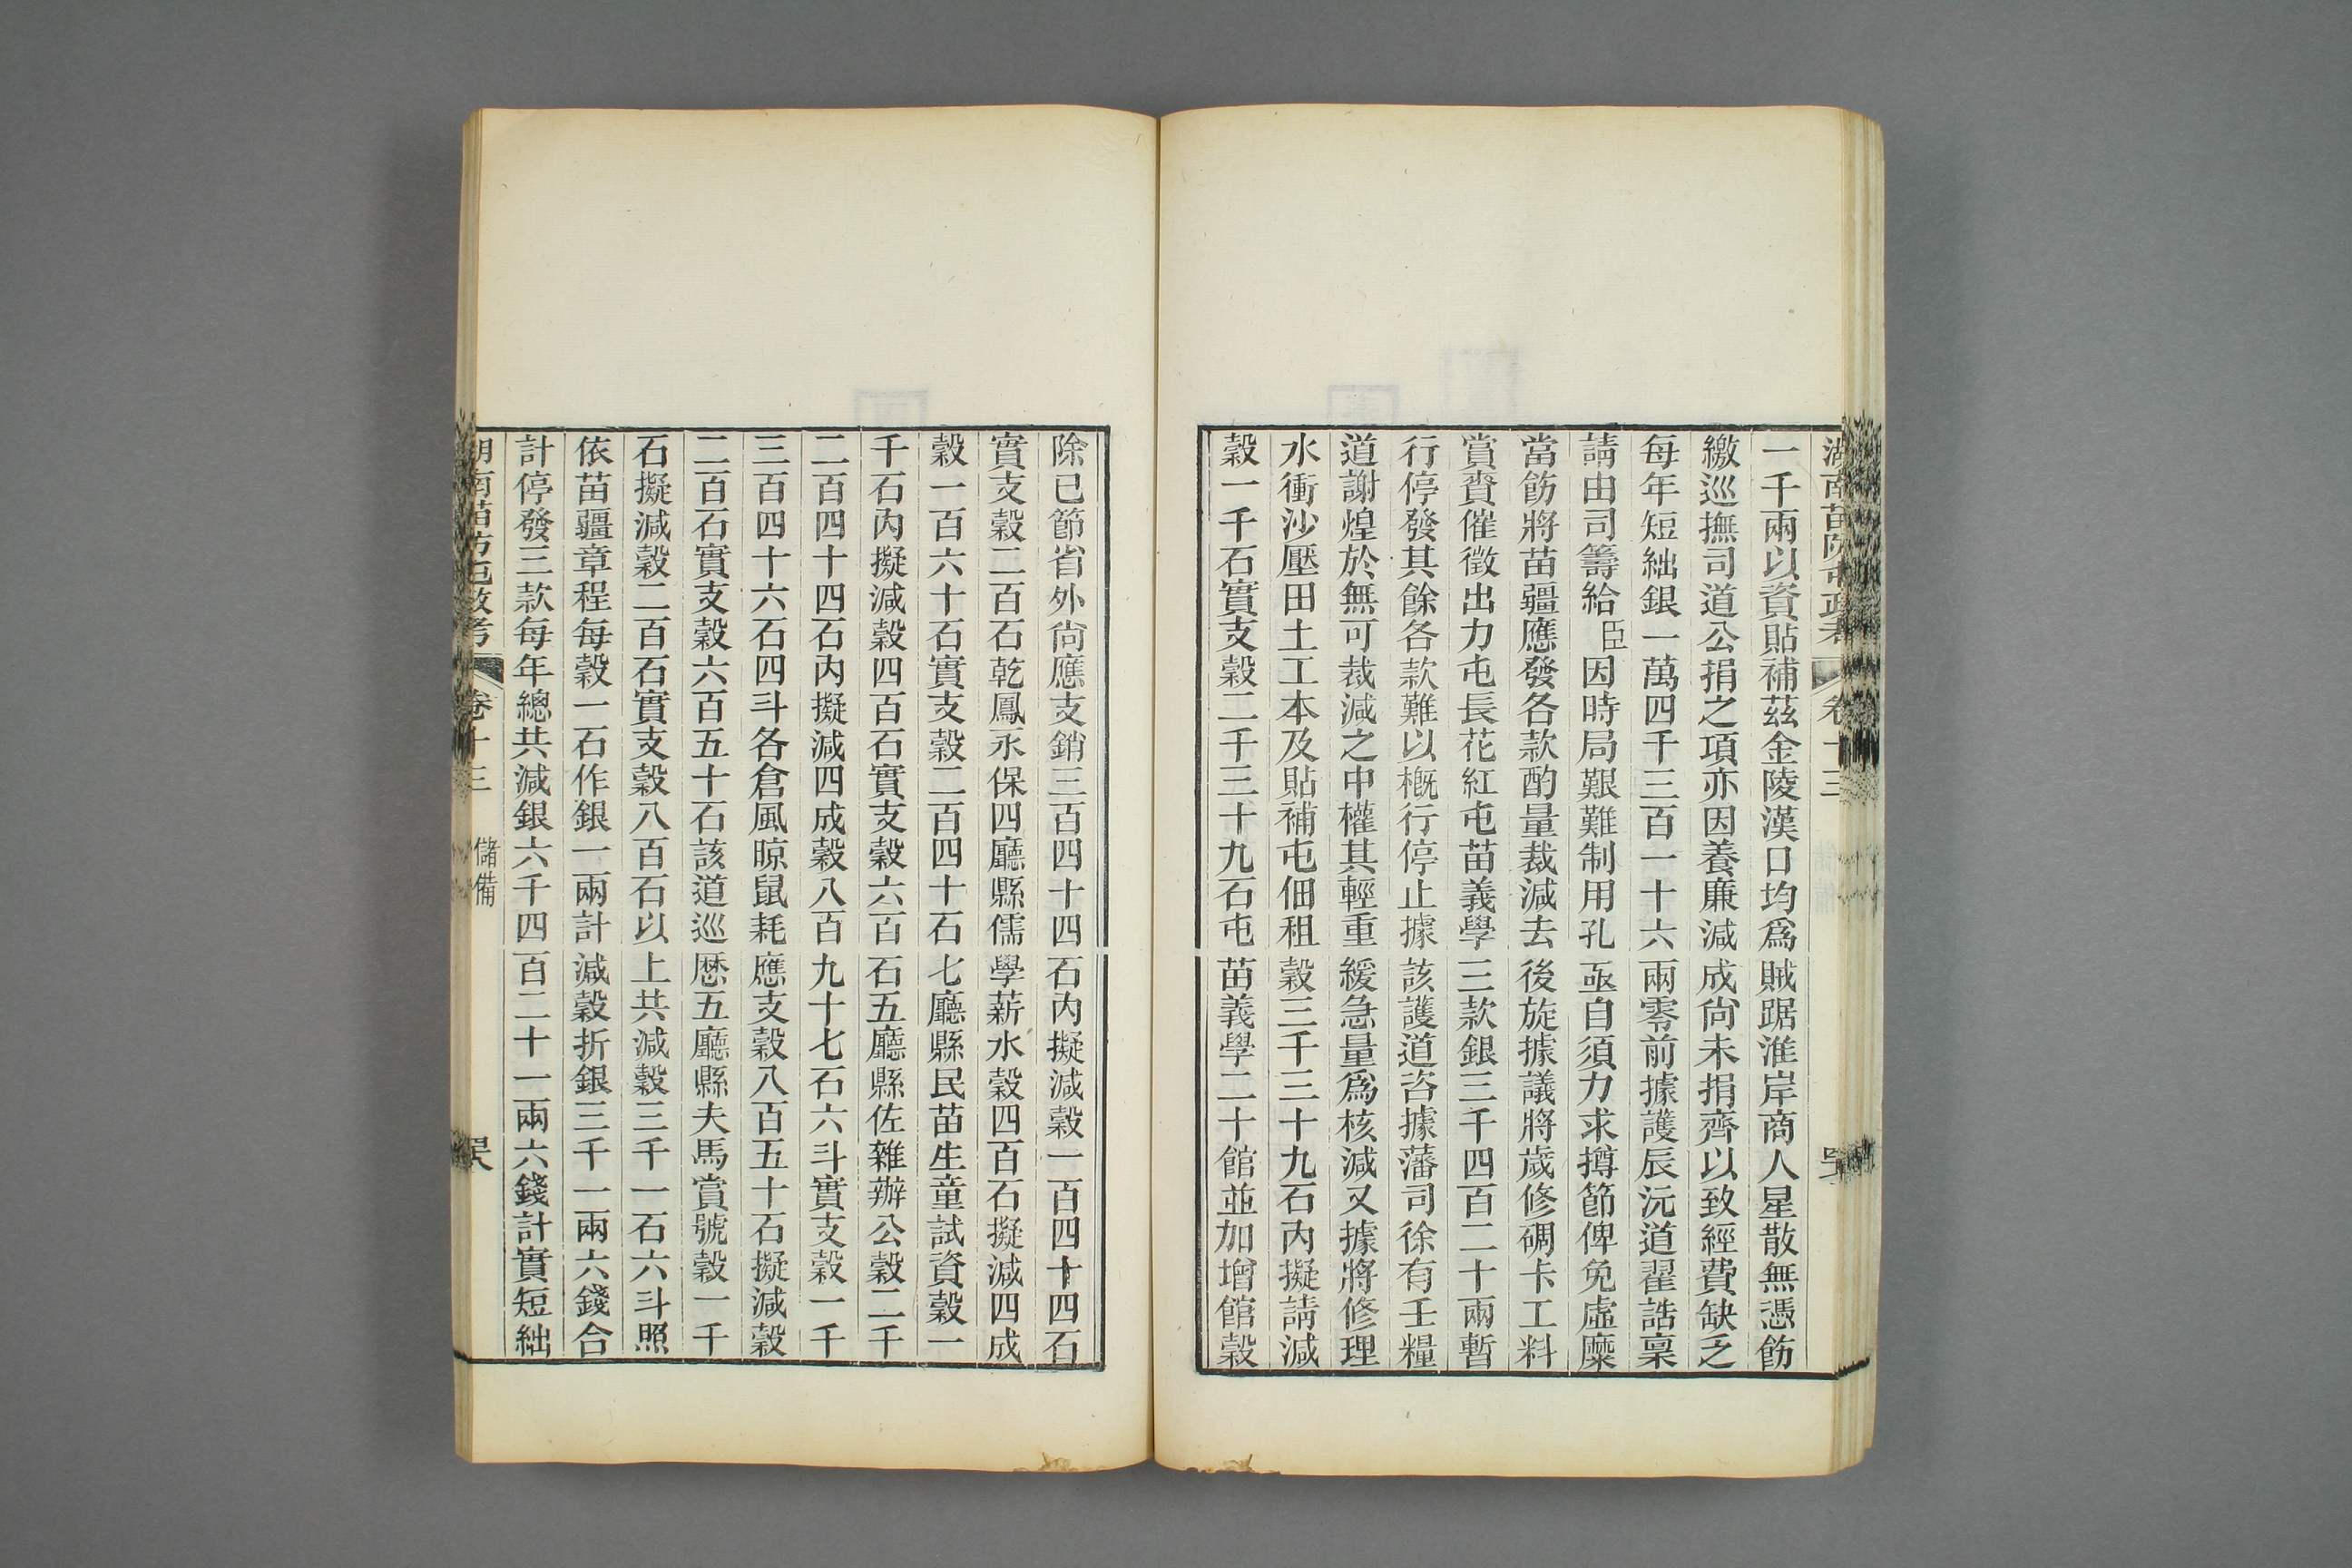 一千兩以資貼補茲金陵漢口均爲賊踞淮岸商人星散無憑飭
繳巡撫司道公捐之項亦因養廉減成尙未捐齊以致經費缺乏
每年短絀銀一萬四千三百一十六兩零前據護辰沅道翟誥稟
請由司籌給臣因時局艱難制用孔亟自須力求撙節俾免虛糜
當飭將苗疆應發各款酌量裁減去後旋據議將歲修碉卡工料
賞賚催徵出力屯長花紅屯苗義學三款銀三千四百二十兩暫
行停發其餘各款難以槪行停止據該護道咨據藩司徐有壬糧
道謝煌於無可裁減之中權其輕重緩急量爲核減又據將修理
水衝沙壓田土工本及貼補屯佃租穀三千三十九石內擬請減
穀一千石實支穀二千三十九石屯苗義學二十館並加增館穀
除已節省外尙應支銷三百四十四石內擬減穀一百四十四石
實支穀二百石乾鳳永保四廳縣儒學薪水穀四百石擬減四成
穀一百六十石實支穀二百四十石七廳縣民苗生童試資穀一
千石內擬減穀四百石實支穀六百石五廳縣佐雜辦公穀二千
二百四十四石內擬減四成穀八百九十七石六斗實支穀一千
三百四十六石四斗各倉風晾鼠耗應支穀八百五十石擬減穀
二百石實支穀六百五十石該道巡歷五廳縣夫馬賞號穀一千
石擬減穀二百石實支穀八百石以上共減穀三千一石六斗照
依苗疆章程每穀一石作銀一兩計減穀折銀三千一兩六錢合
計停發三款每年總共減銀六千四百二十一兩六錢計實短絀
卷十三 儲備